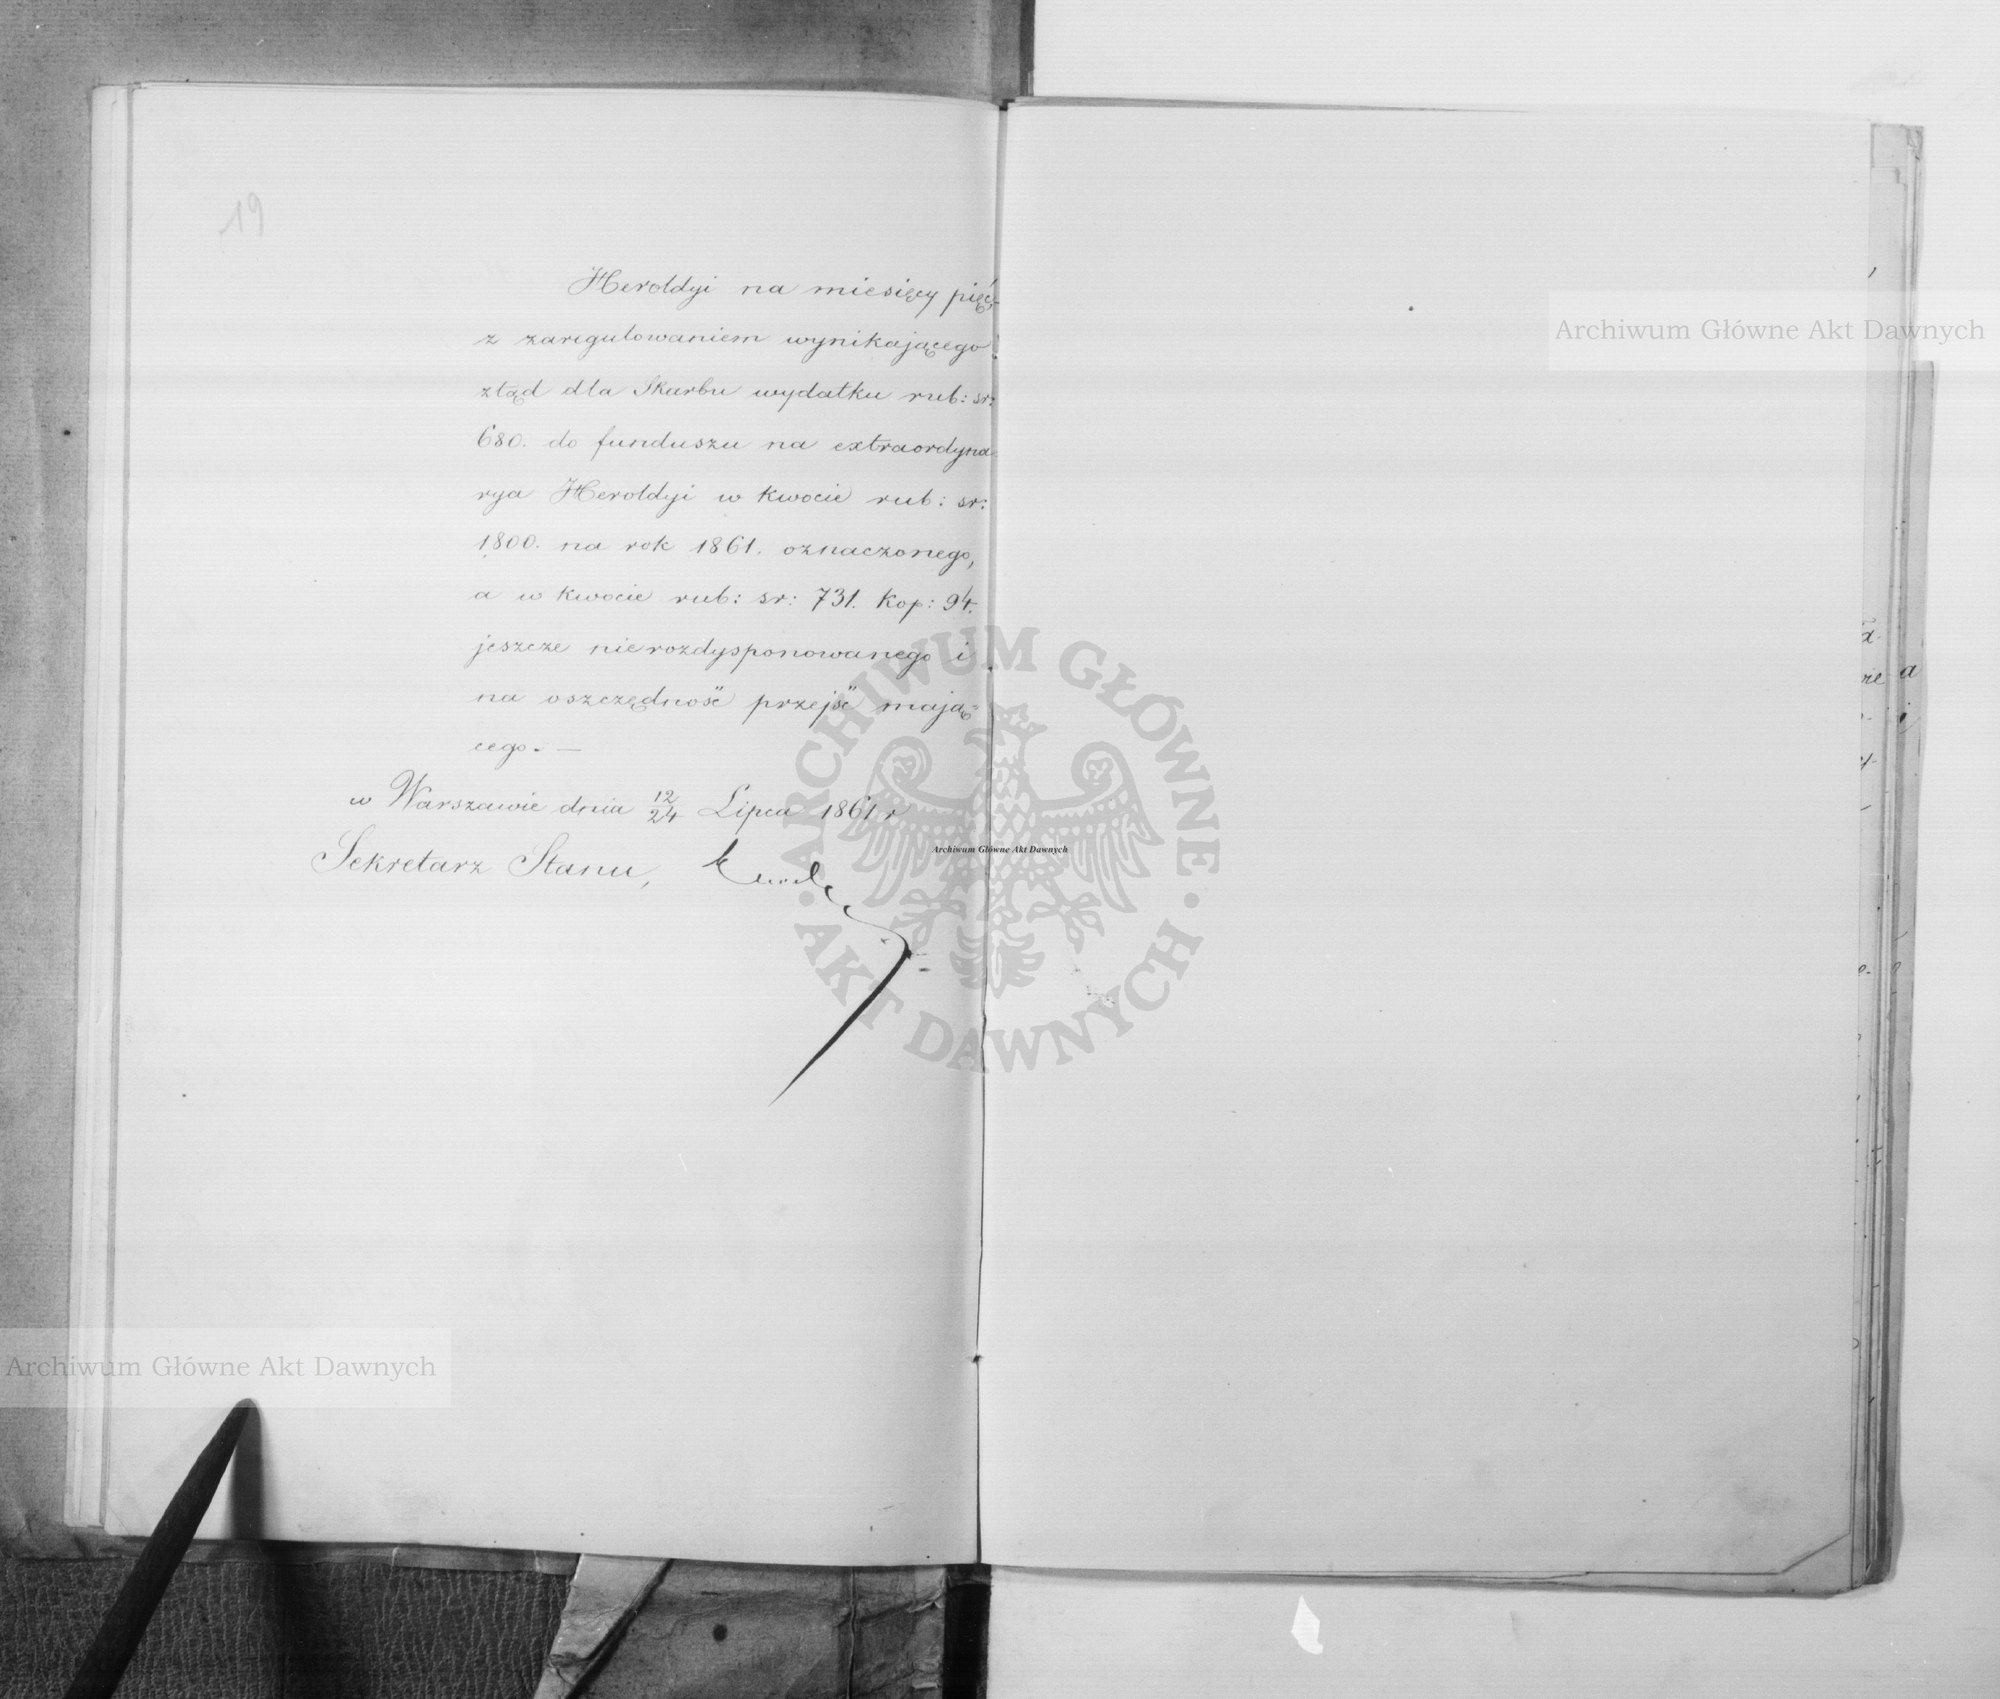 19
Heroldyi na miesięcy pięć,
z zaregulowaniem wynikającego
ztąd dla Skarbu wydatku rub: sr:
680. do funduszu na extraordyna
rya Heroldyi w kwocie rub: sr:
1,800. na rok 1861. oznaczonego,
a w kwocie rub: sr: 731. kop: 94.
jeszcze nierozdysponowanego i
na oszczędność przejść mają-
cego. —
w Warszawie dnia 12/24 Lipca 1861 r
Sekretarz Stanu,
Archiwum Główne Akt Dawnych
ARCHIWUM GŁÓWNE
AKT DAWNYCH
Archiwum Główne Akt Dawnych
Archiwum Główne Akt Dawnych